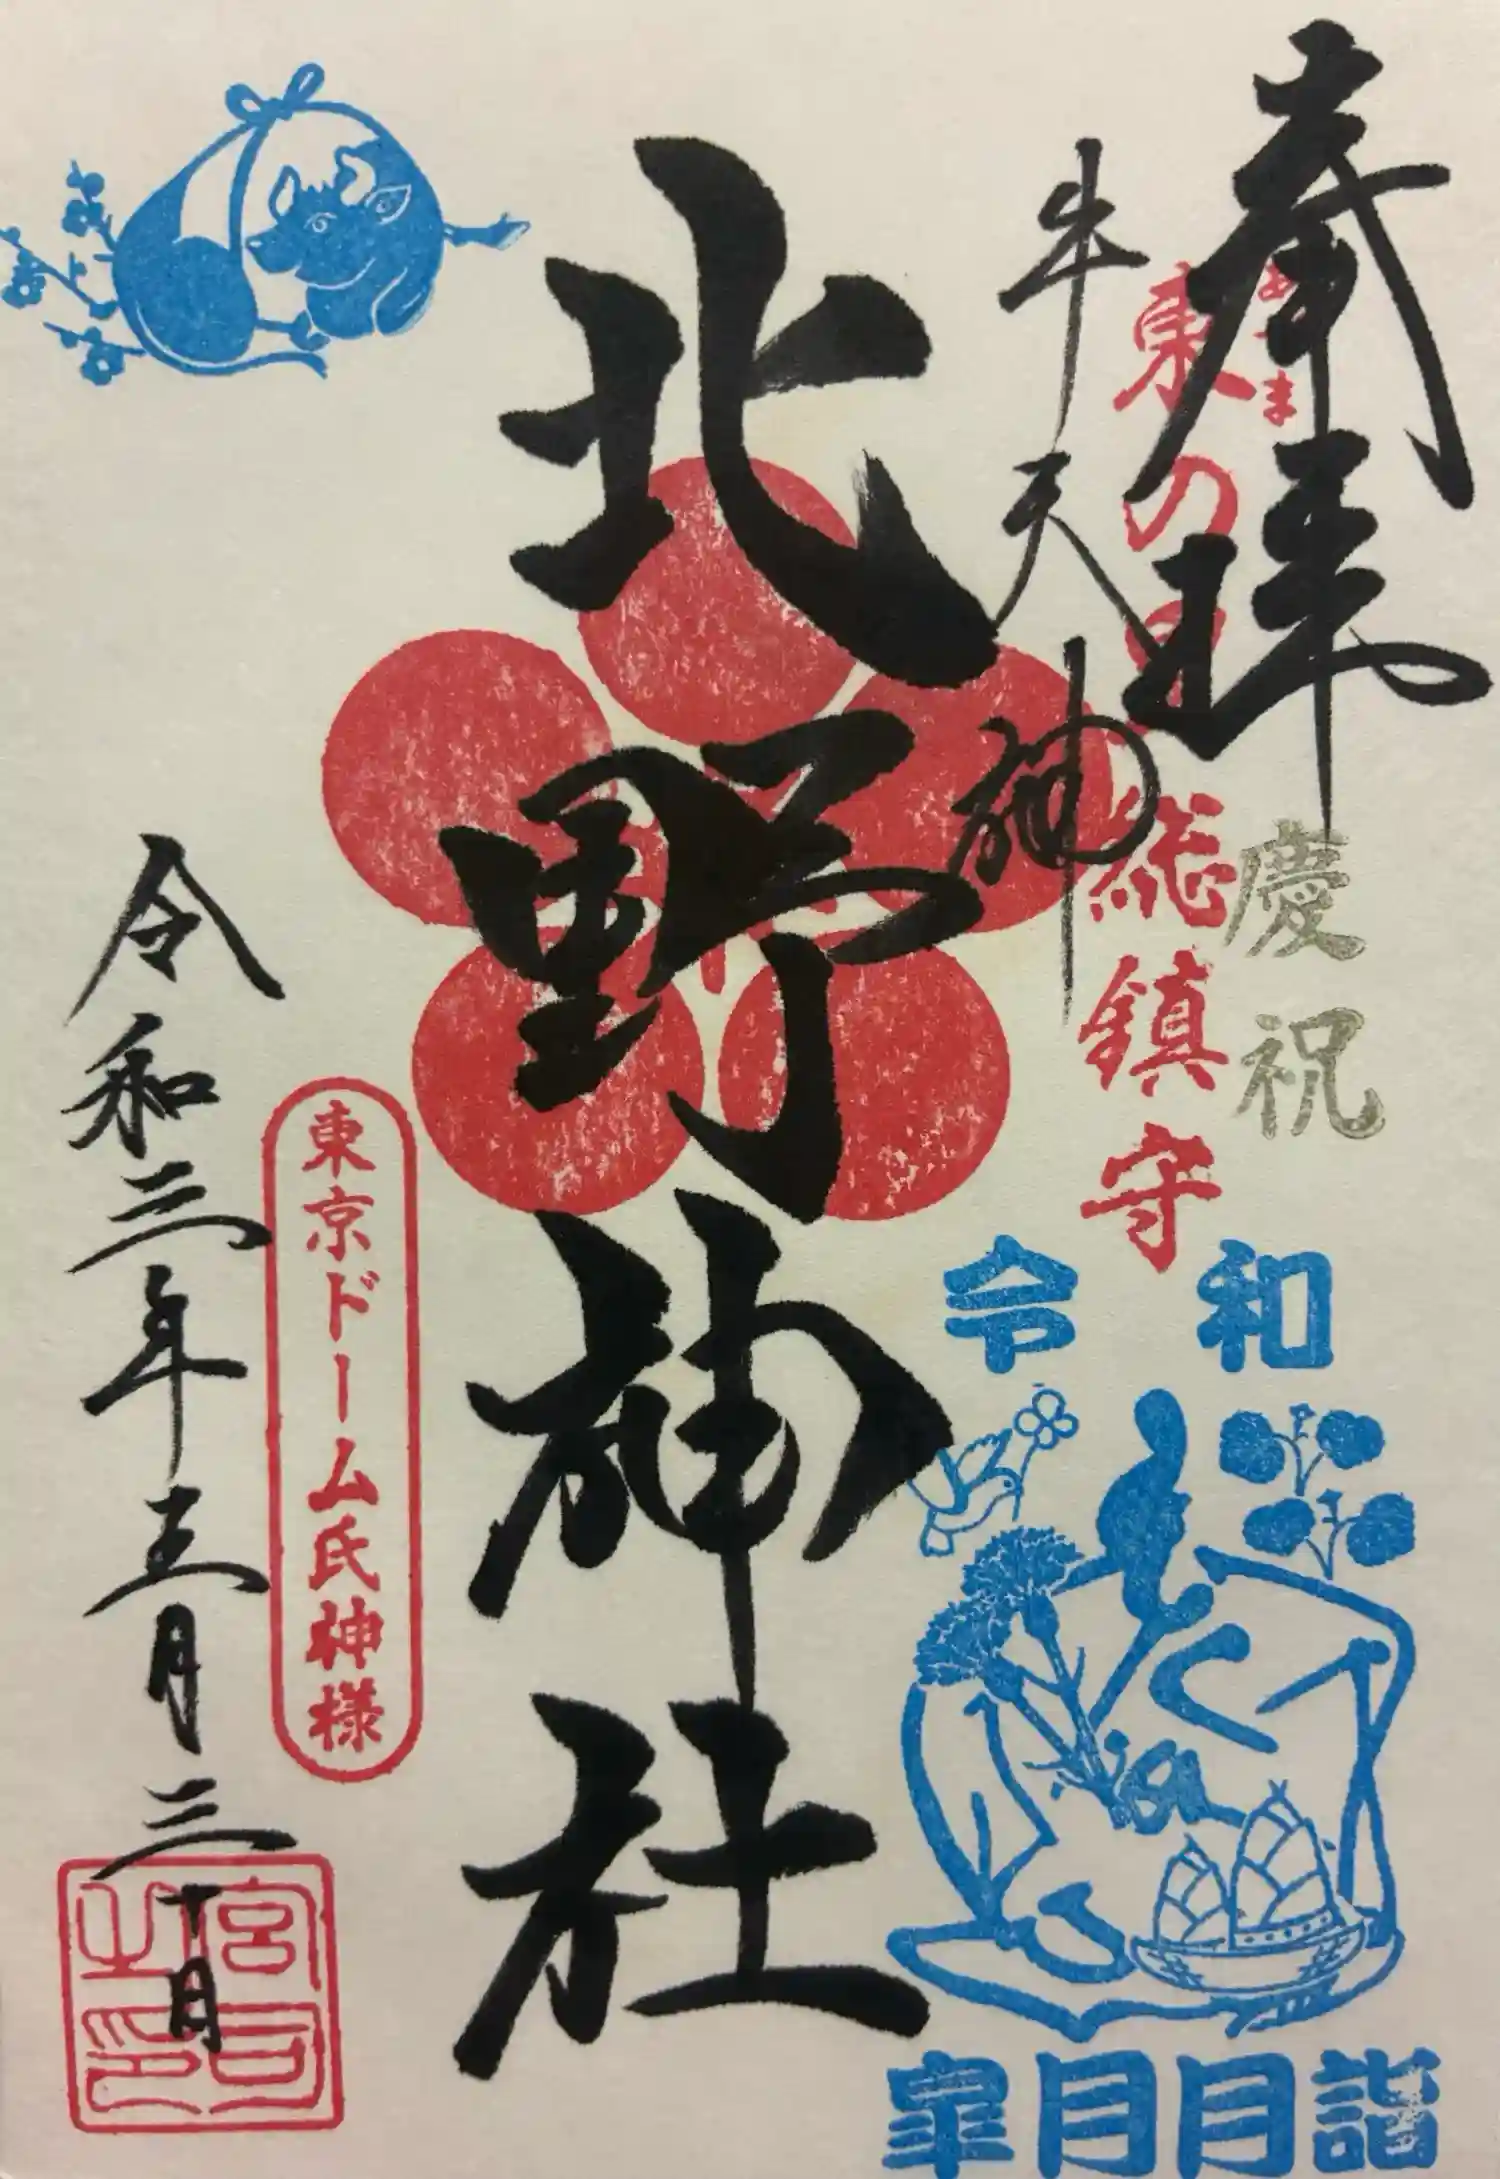 奉拝
慶祝
東の
総鎮守
牛天神
北野神社
令和
皐月月詣
東京ドーム氏神様
令和三年五月三十日
宮司之印